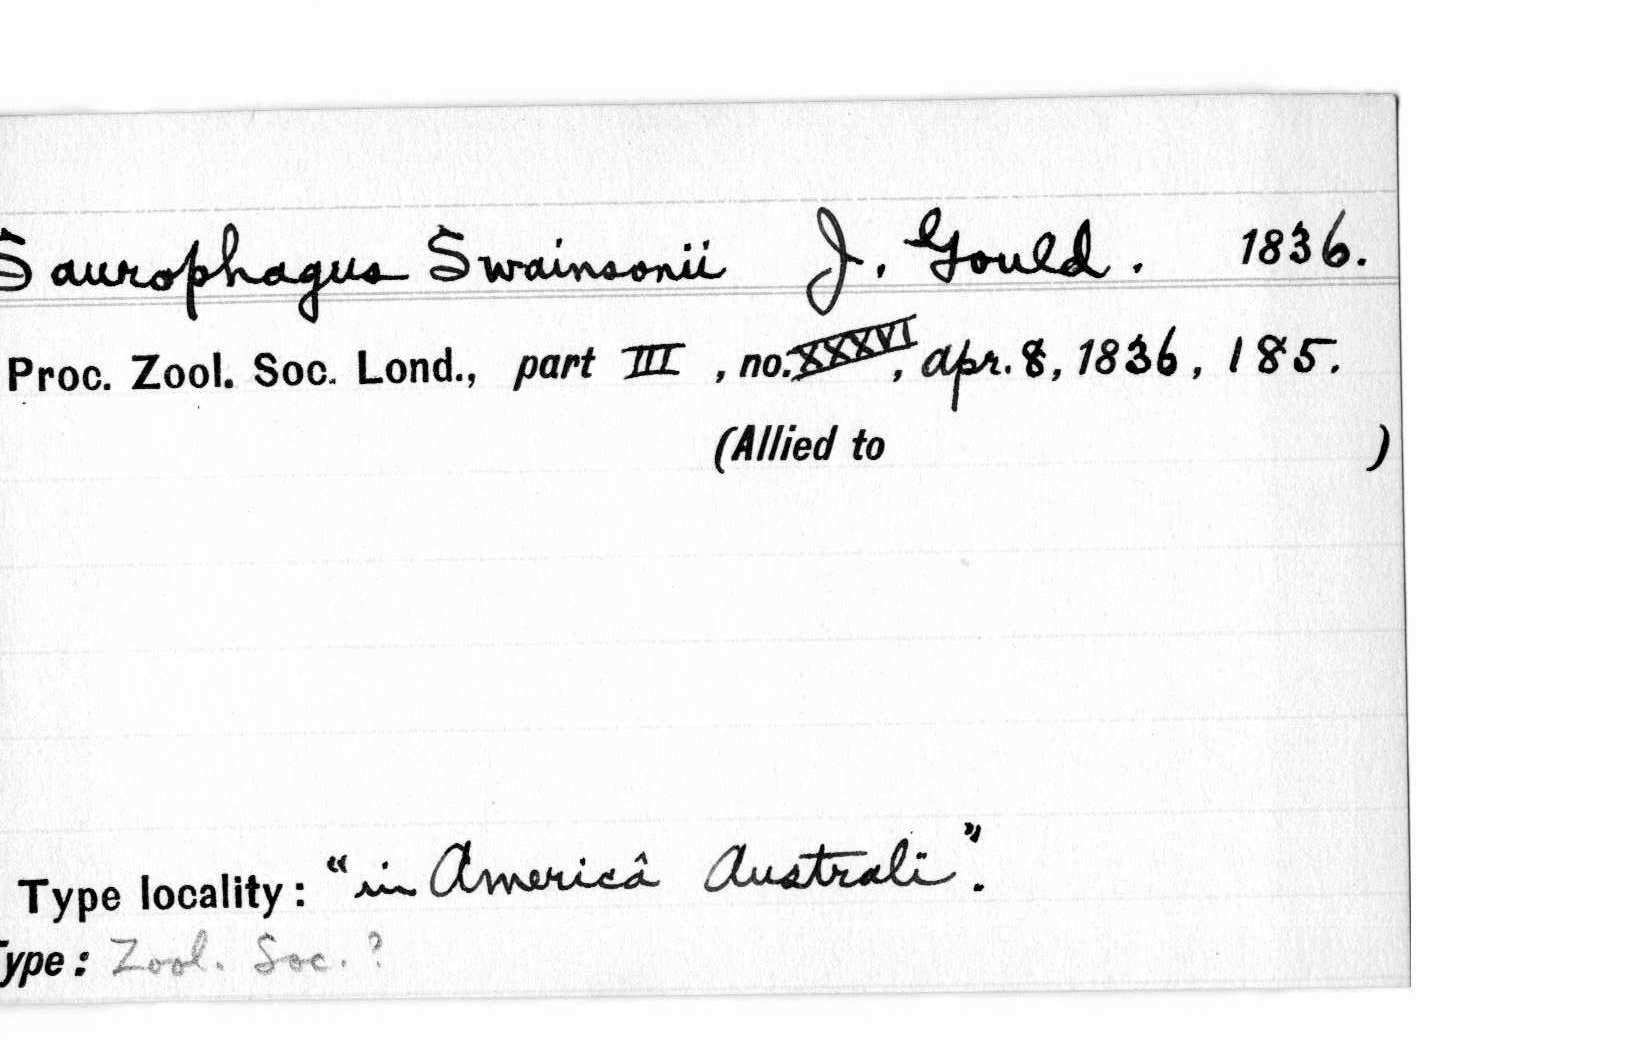 Saurophagus Swainsonii J. Gould. 1836.
Proc. Zool. Soc. Lond., part III, no. XXXVI, Apr. 8, 1836, 185.
(Allied to )
Type locality: "in Americâ Australi".
Type: Zool. Soc. ?